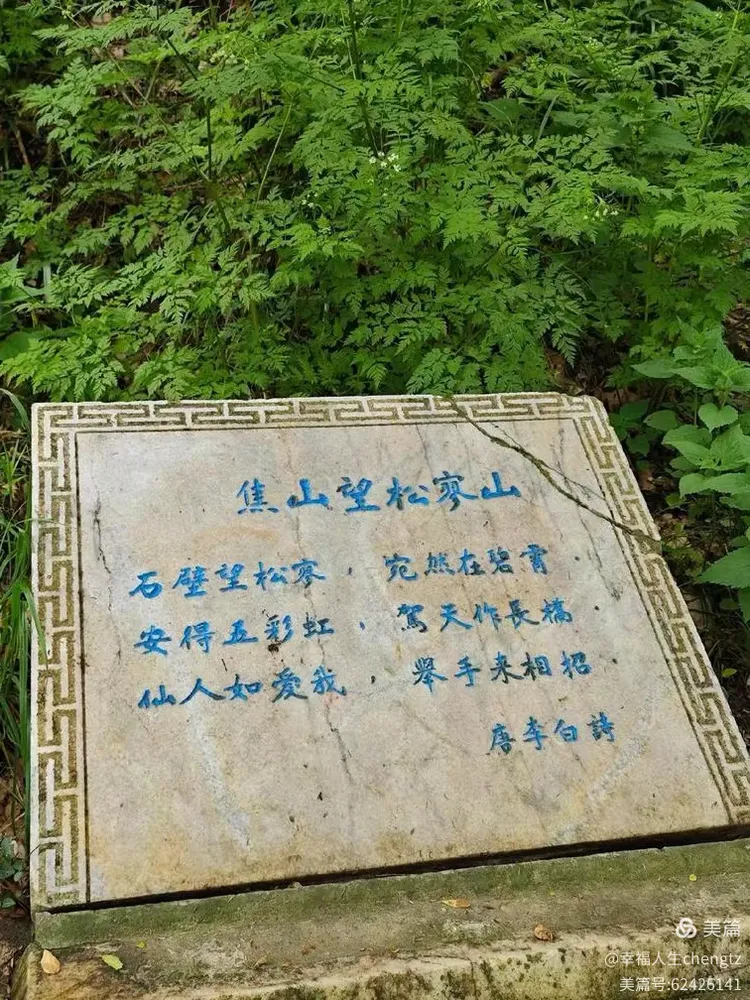 焦山望松寥山
石壁望松寥，宛然在碧霄．
安得五彩虹，駕天作長橋．
仙人如愛我，舉手来相招．
唐李白詩
美篇
@幸福人生chengtz
美篇号:62425141